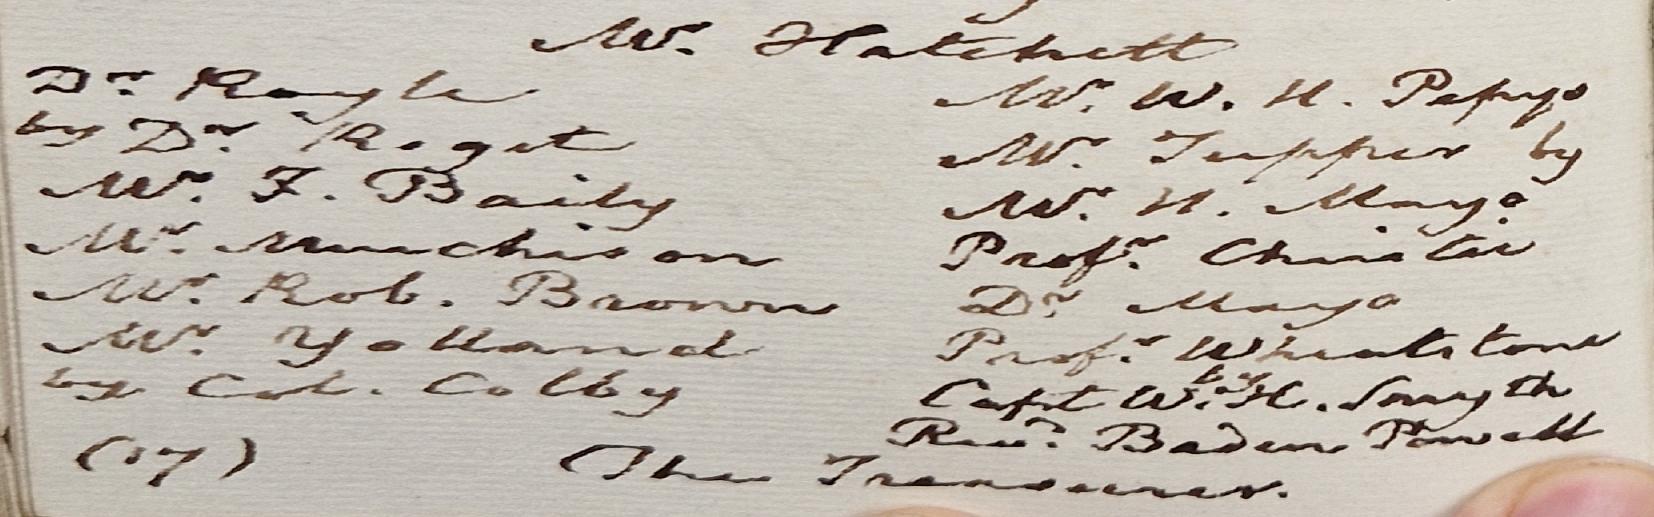 Mr. Hatchett
Dr. Royle
by Dr. Roget
Mr. F. Baily
Mr. Murchison
Mr. Rob. Brown
Mr. Yolland
by Col. Colby
(17)
Mr. W. H. Pepys
Mr. Tupper by
Mr. H. Mayo
Profr. Christie
Dr. Mayo
Profr. Wheatstone
by
Capt W. H. Smyth
Revd. Baden Powell
The Treasurer.